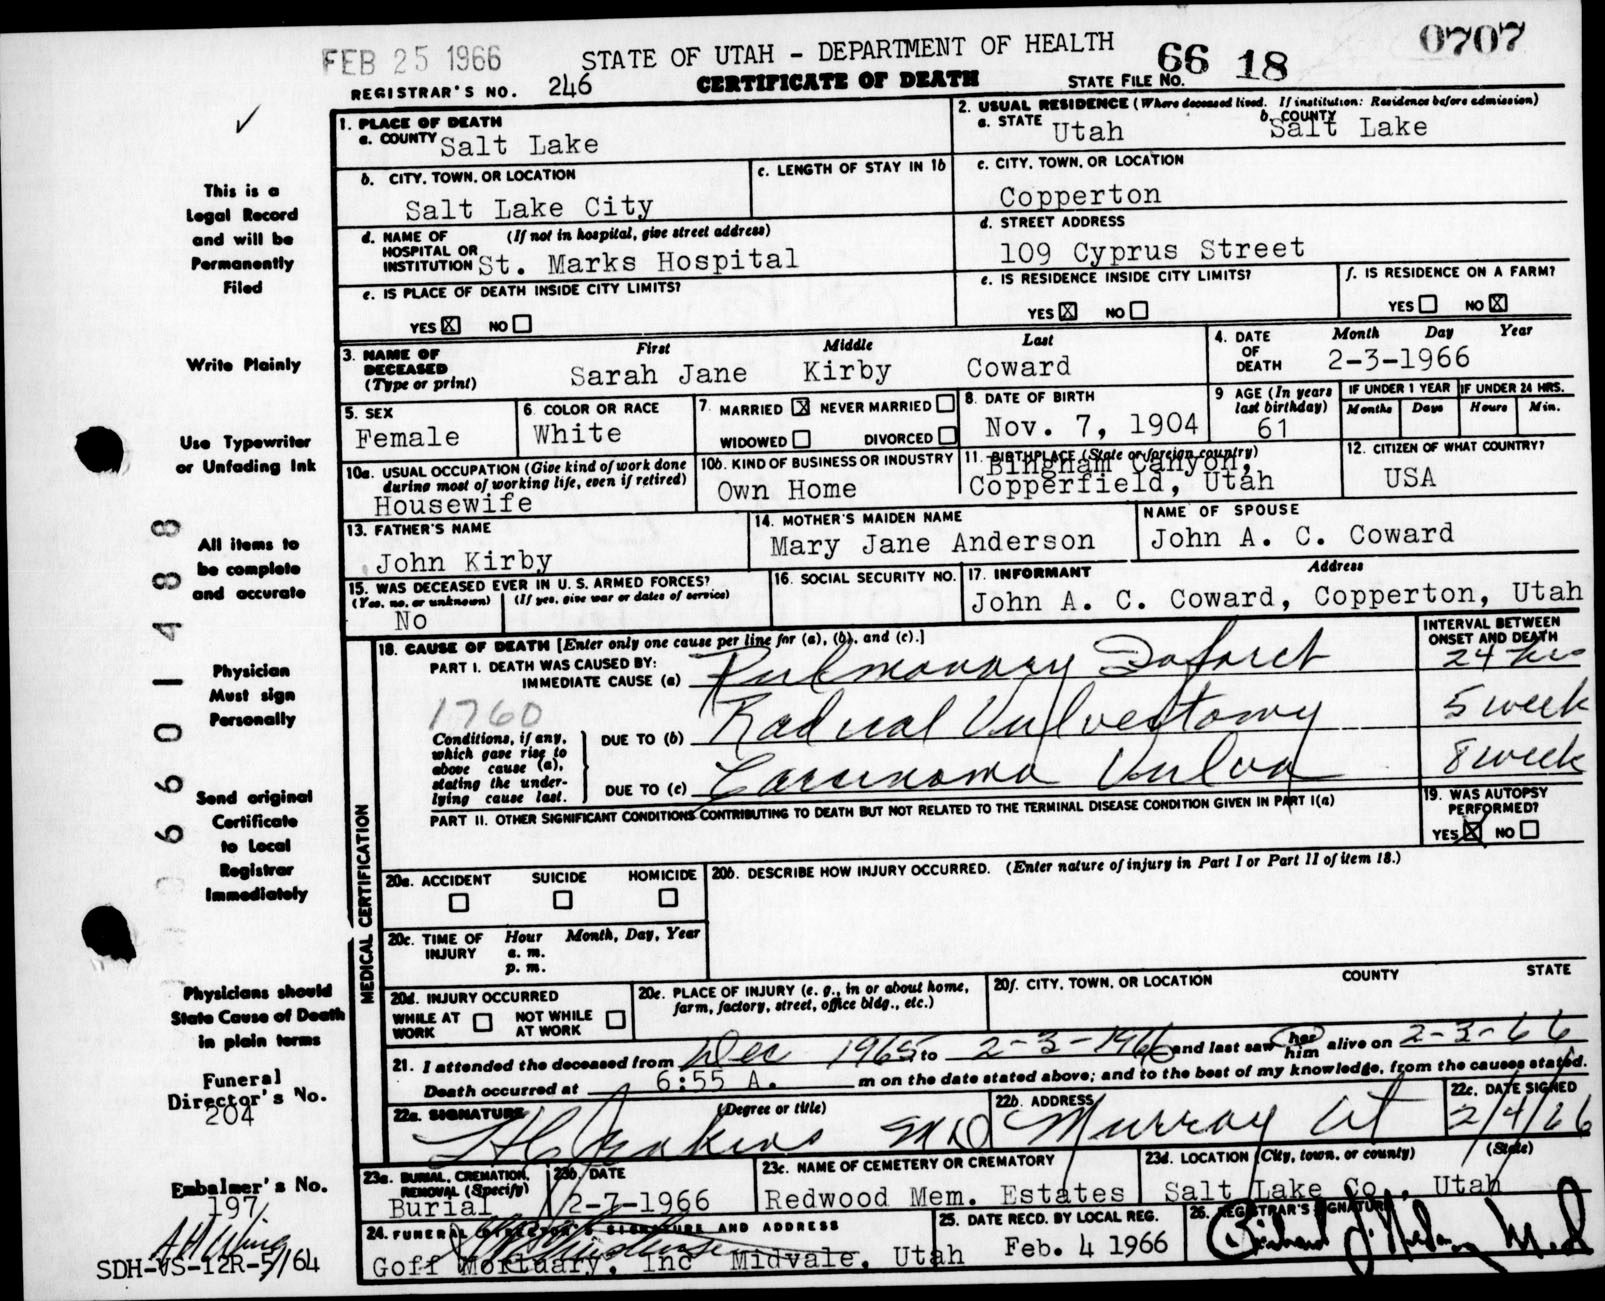 FEB 25 1966
STATE OF UTAH - DEPARTMENT OF HEALTH
66 18
0707
REGISTRAR'S NO. 246
CERTIFICATE OF DEATH
STATE FILE NO.
This is a
Legal Record
and will be
Permanently
Filed
Write Plainly
Use Typewriter
or Unfading Ink
All items to
be complete
and accurate
Physician
Must sign
Personally
Send original
Certificate
to Local
Registrar
Immediately
Physicians should
State Cause of Death
in plain terms
Funeral
Director's No.
204
Embalmer's No.
197
SDH-VS-12R-5/64
6601488
1. PLACE OF DEATH
a. COUNTY Salt Lake
2. USUAL RESIDENCE (Where deceased lived. If institution: Residence before admission)
a. STATE Utah
b. COUNTY Salt Lake
b. CITY, TOWN, OR LOCATION
Salt Lake City
c. LENGTH OF STAY IN 1b
c. CITY, TOWN, OR LOCATION
Copperton
d. NAME OF (If not in hospital, give street address)
HOSPITAL OR
INSTITUTION St. Marks Hospital
d. STREET ADDRESS
109 Cyprus Street
e. IS PLACE OF DEATH INSIDE CITY LIMITS?
YES X NO
e. IS RESIDENCE INSIDE CITY LIMITS?
YES X NO
f. IS RESIDENCE ON A FARM?
YES NO X
3. NAME OF
DECEASED
(Type or print)
First Middle Last
Sarah Jane Kirby Coward
4. DATE
OF
DEATH
Month Day Year
2-3-1966
5. SEX
Female
6. COLOR OR RACE
White
7. MARRIED X NEVER MARRIED
WIDOWED DIVORCED
8. DATE OF BIRTH
Nov. 7, 1904
9 AGE (In years
last birthday)
61
IF UNDER 1 YEAR
Months Days
IF UNDER 24 HRS.
Hours Min.
10a. USUAL OCCUPATION (Give kind of work done
during most of working life, even if retired)
Housewife
10b. KIND OF BUSINESS OR INDUSTRY
Own Home
11. BIRTHPLACE (State or foreign country)
Bingham Canyon,
Copperfield, Utah
12. CITIZEN OF WHAT COUNTRY?
USA
13. FATHER'S NAME
John Kirby
14. MOTHER'S MAIDEN NAME
Mary Jane Anderson
NAME OF SPOUSE
John A. C. Coward
15. WAS DECEASED EVER IN U. S. ARMED FORCES?
(Yes, no, or unknown) (If yes, give war or dates of service)
No
16. SOCIAL SECURITY NO.
17. INFORMANT Address
John A. C. Coward, Copperton, Utah
MEDICAL CERTIFICATION
18. CAUSE OF DEATH [Enter only one cause per line for (a), (b), and (c).]
INTERVAL BETWEEN
ONSET AND DEATH
PART I. DEATH WAS CAUSED BY:
IMMEDIATE CAUSE (a) Pulmonary Infarct 24 hrs
1760
Conditions, if any,
which gave rise to
above cause (a),
stating the under-
lying cause last.
DUE TO (b) Radical Vulvectomy 5 week
DUE TO (c) Carcinoma Vulva 8 week
PART II. OTHER SIGNIFICANT CONDITIONS CONTRIBUTING TO DEATH BUT NOT RELATED TO THE TERMINAL DISEASE CONDITION GIVEN IN PART I(a)
19. WAS AUTOPSY
PERFORMED?
YES X NO
20a. ACCIDENT SUICIDE HOMICIDE
20b. DESCRIBE HOW INJURY OCCURRED. (Enter nature of injury in Part I or Part II of item 18.)
20c. TIME OF
INJURY
Hour Month, Day, Year
a. m.
p. m.
20d. INJURY OCCURRED
WHILE AT
WORK
NOT WHILE
AT WORK
20e. PLACE OF INJURY (e. g., in or about home,
farm, factory, street, office bldg., etc.)
20f. CITY, TOWN, OR LOCATION COUNTY STATE
21. I attended the deceased from Dec 1965 to 2-3-1966 and last saw her him alive on 2-3-66
Death occurred at 6:55 A. m on the date stated above; and to the best of my knowledge, from the causes stated.
22a. SIGNATURE (Degree or title)
MD
22b. ADDRESS
Murray Ut
22c. DATE SIGNED
2/4/66
23a. BURIAL, CREMATION,
REMOVAL (Specify)
Burial
23b. DATE
2-7-1966
23c. NAME OF CEMETERY OR CREMATORY
Redwood Mem. Estates
23d. LOCATION (City, town, or county) (State)
Salt Lake Co. Utah
24. FUNERAL DIRECTOR'S SIGNATURE AND ADDRESS
Goff Mortuary, Inc Midvale, Utah
25. DATE RECD. BY LOCAL REG.
Feb. 4 1966
26. REGISTRAR'S SIGNATURE